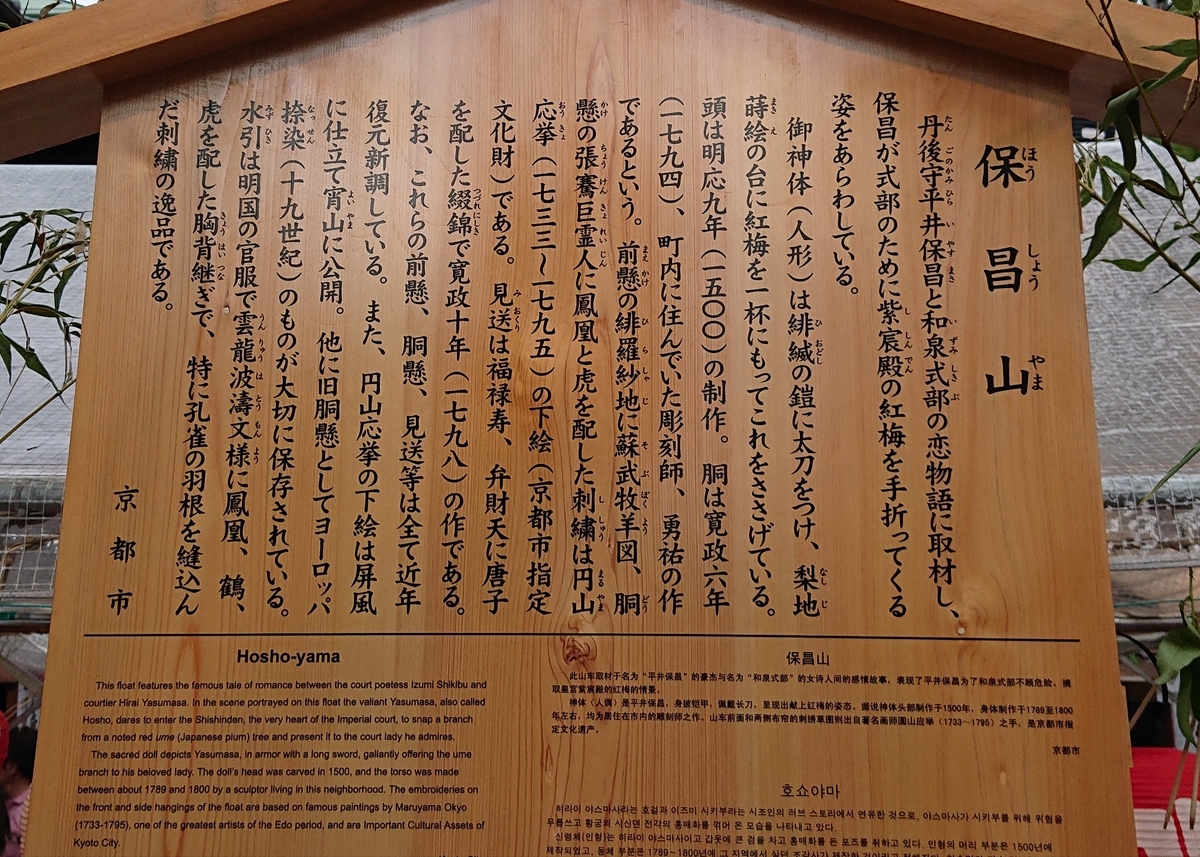 保昌山
丹後守平井保昌と和泉式部の恋物語に取材し、
保昌が式部のために紫宸殿の紅梅を手折ってくる
姿をあらわしている。
御神体（人形）は緋縅の鎧に太刀をつけ、梨地
蒔絵の台に紅梅を一杯にもってこれをささげている。
頭は明応九年（一五〇〇）の制作。胴は寛政六年
（一七九四）、町内に住んでいた彫刻師、勇祐の作
であるという。前懸の緋羅紗地に蘇武牧羊図、胴
懸の張騫巨霊人に鳳凰と虎を配した刺繍は円山
応挙（一七三三〜一七九五）の下絵（京都市指定
文化財）である。見送は福禄寿、弁財天に唐子
を配した綴錦で寛政十年（一七九八）の作である。
なお、これらの前懸、胴懸、見送等は全て近年
復元新調している。また、円山応挙の下絵は屏風
に仕立て宵山に公開。他に旧胴懸としてヨーロッパ
捺染（十九世紀）のものが大切に保存されている。
水引は明国の官服で雲龍波濤文様に鳳凰、鶴、
虎を配した胸背継ぎで、特に孔雀の羽根を縫込ん
だ刺繍の逸品である。
京都市
Hosho-yama
This float features the famous tale of romance between the court poetess Izumi Shikibu and
courtier Hirai Yasumasa. In the scene portrayed on this float the valiant Yasumasa, also called
Hosho, dares to enter the Shishinden, the very heart of the Imperial court, to snap a branch
from a noted red ume (Japanese plum) tree and present it to the court lady he admires.
The sacred doll depicts Yasumasa, in armor with a long sword, gallantly offering the ume
branch to his beloved lady. The doll's head was carved in 1500, and the torso was made
between about 1789 and 1800 by a sculptor living in this neighborhood. The embroideries on
the front and side hangings of the float are based on famous paintings by Maruyama Okyo
(1733-1795), one of the greatest artists of the Edo period, and are Important Cultural Assets of
Kyoto City.
保昌山
此山车取材于名为“平井保昌”的豪杰与名为“和泉式部”的女诗人间的感情故事，表现了平井保昌为了和泉式部不顾危险，摘
取皇宫紫宸殿的红梅的情景。
神体（人偶）是平井保昌，身披铠甲，佩戴长刀，呈现出献上红梅的姿态。据说神体头部制作于1500年，身体制作于1789至1800
年左右，均为居住在市内的雕刻师之作。山车前面和两侧布帘的刺绣草图则出自著名画师圆山应举（1733~1795）之手，是京都市指
定文化遗产。
京都市
호쇼야마
히라이 야스마사라는 호걸과 이즈미 시키부라는 시조인의 러브 스토리에서 연유한 것으로, 야스마사가 시키부를 위해 위험을
무릅쓰고 황궁의 시신덴 전각의 홍매화를 꺾어 온 모습을 나타내고 있다.
신령체(인형)는 히라이 야스마사이고 갑옷에 큰 검을 차고 홍매화를 든 포즈를 취하고 있다. 인형의 머리 부분은 1500년에
제작되었고, 동체 부분은 1789~1800년에 그 지역에서 살던 조각사가